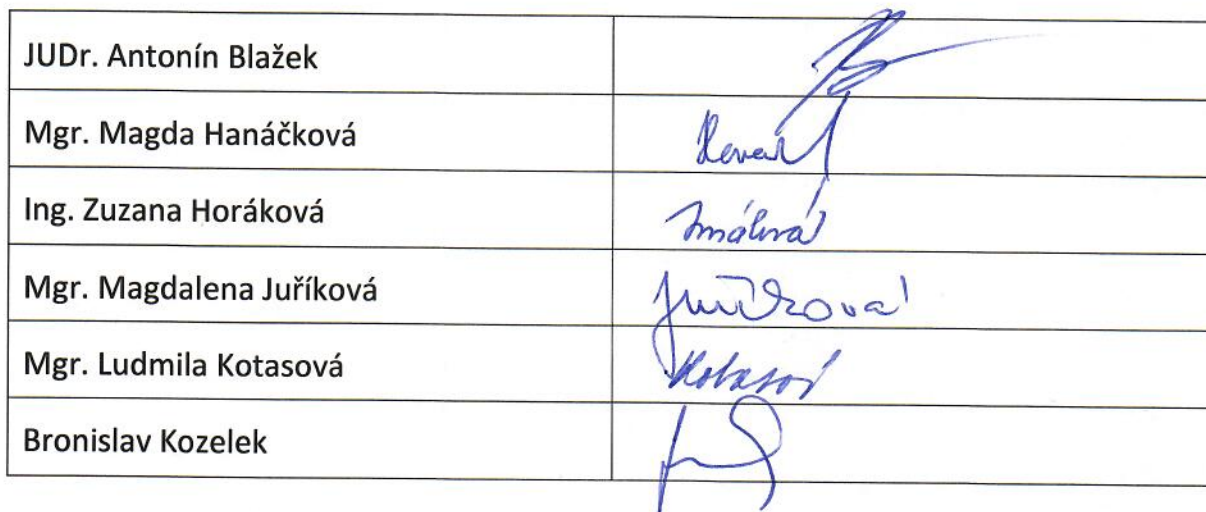 JUDr. Antonín Blažek
Mgr. Magda Hanáčková
Ing. Zuzana Horáková
Mgr. Magdalena Juříková
Juříková
Mgr. Ludmila Kotasová
Bronislav Kozelek